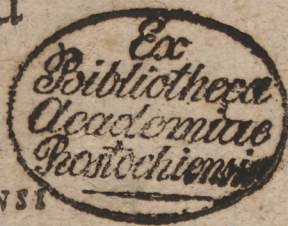 Ex
Bibliotheca
Academiae
Rostochiensis
NSI